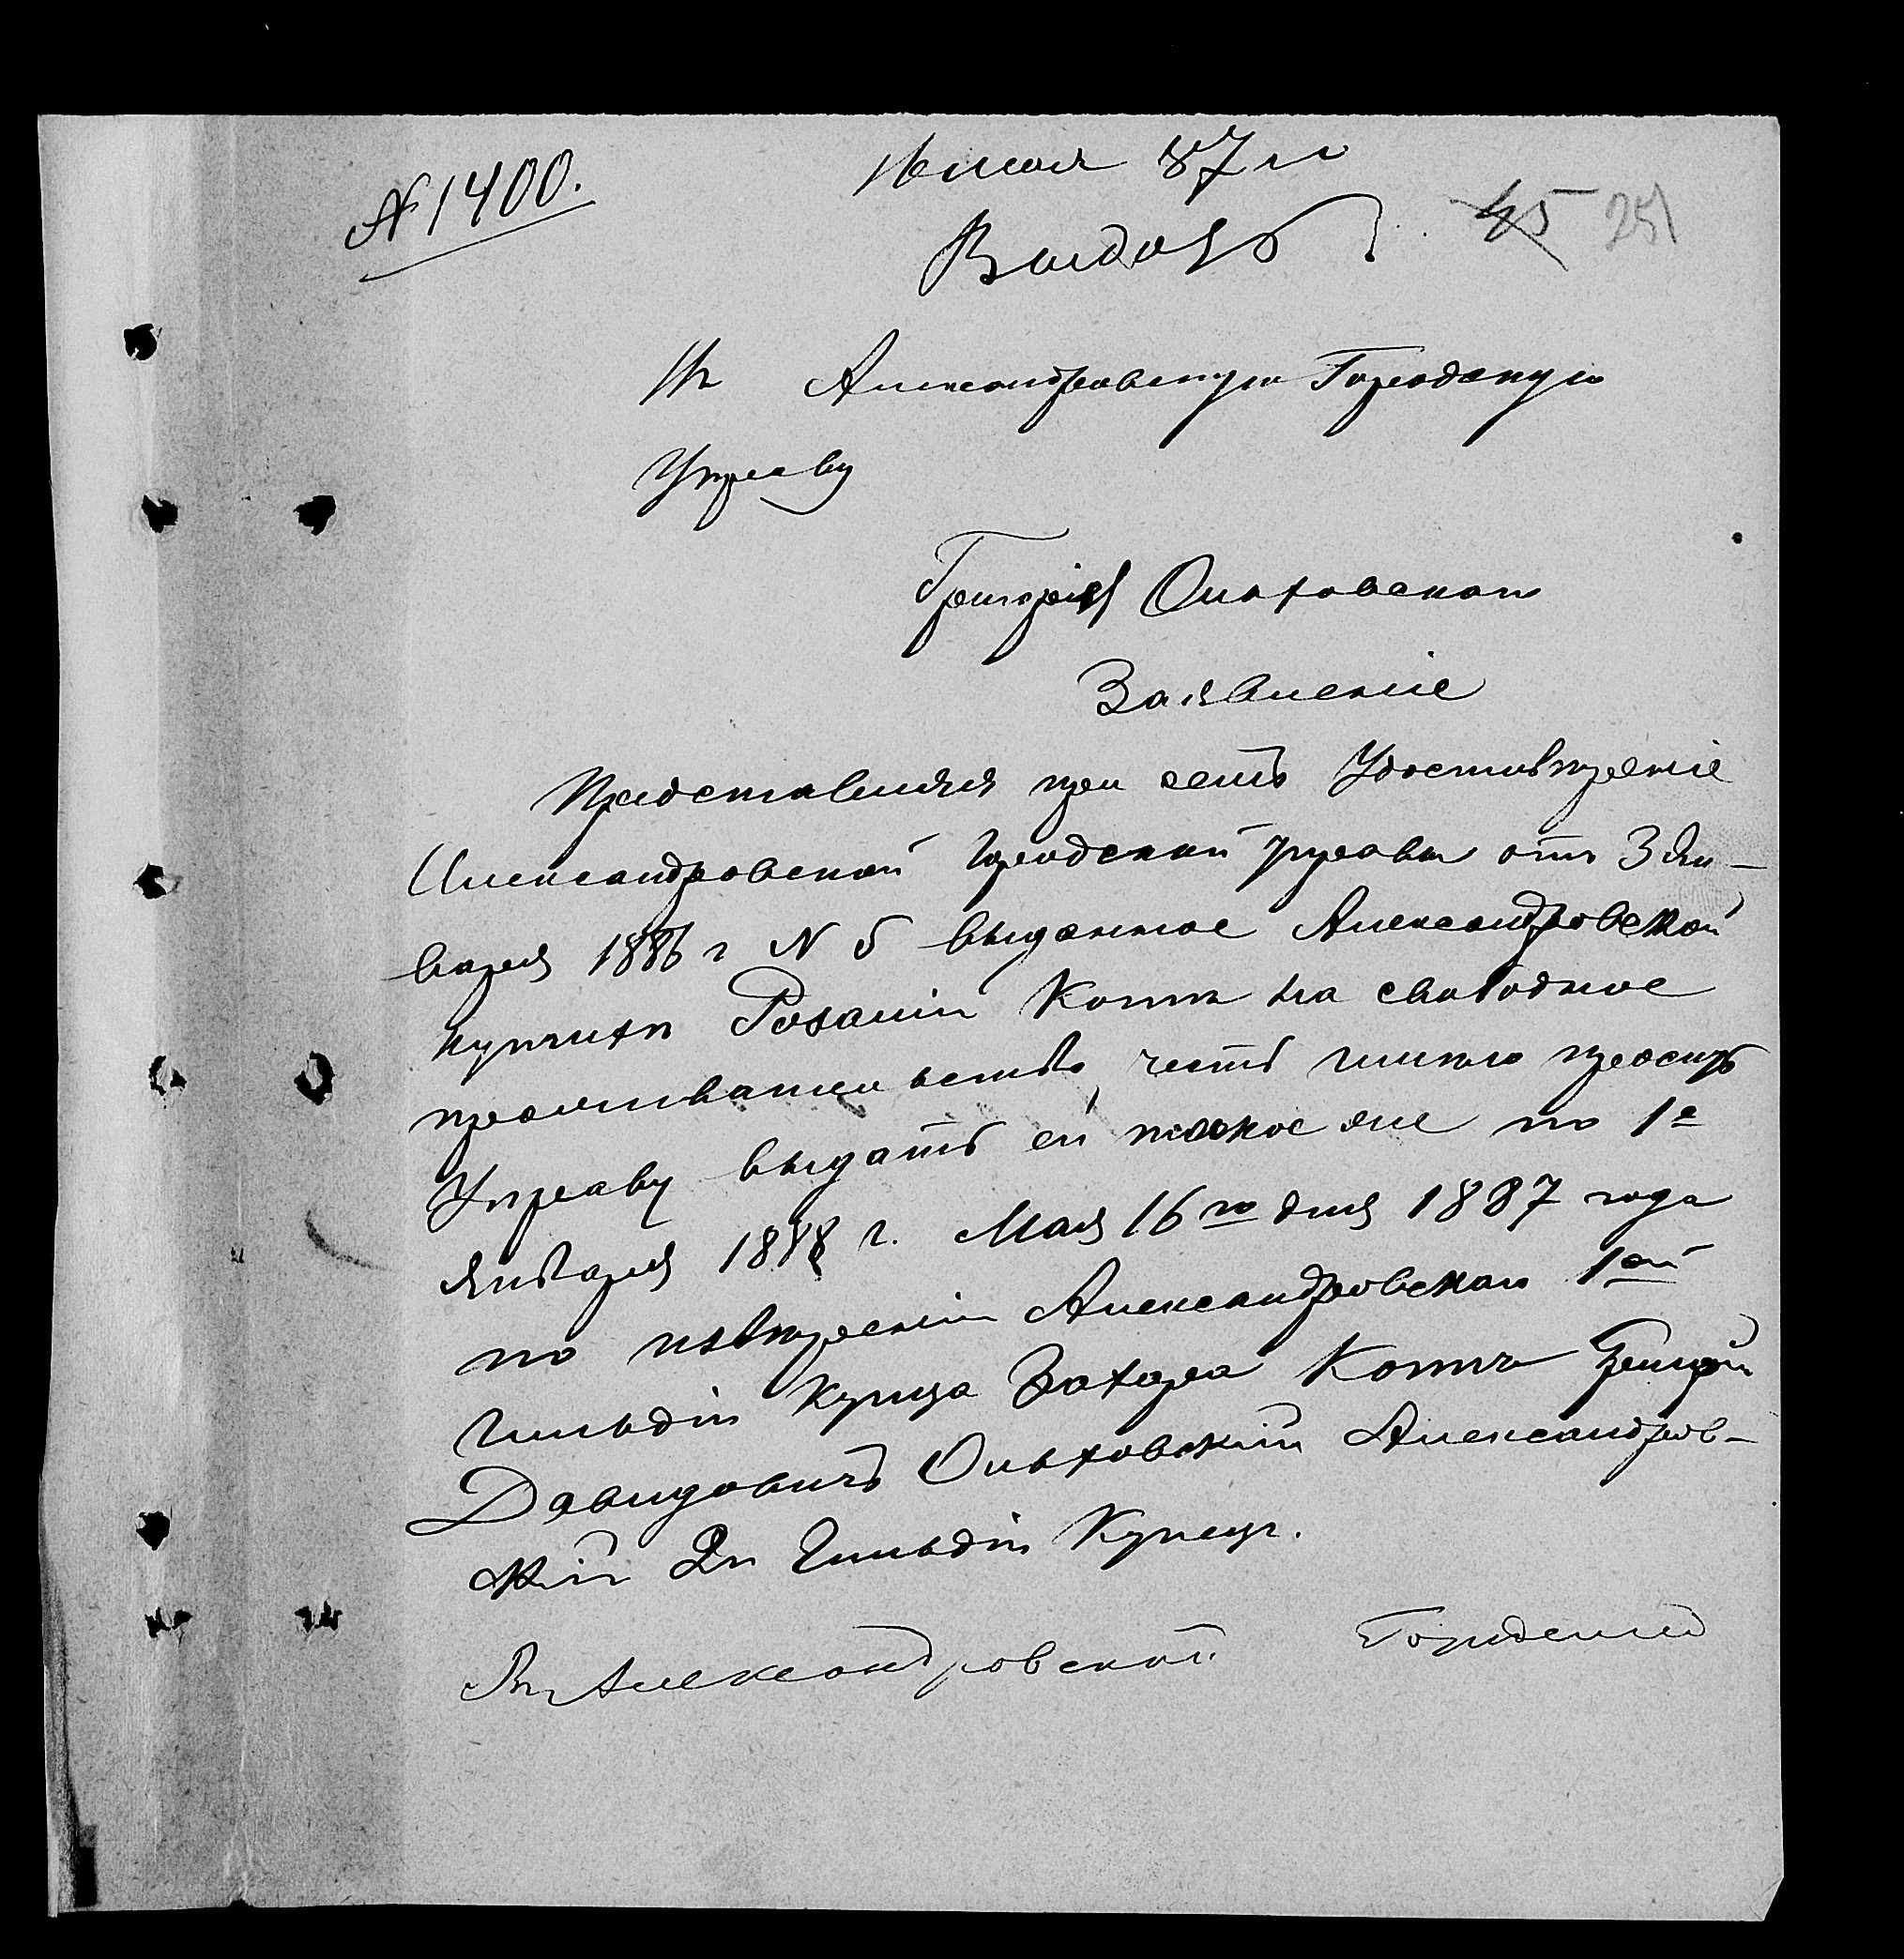 № 1400.
16 мая 87 г
Выдать
45 251
Въ Александровскую Городскую
Управу
Григорія Ольховскаго
Заявленіе
Представляя при семъ Удостовѣреніе
Александровской Городской Управы отъ 3 Ян-
варя 1886 г N 5 выданное Александровской
купчихѣ Розаліи Коттъ на свободное
проживательство, честь имѣю просить
Управу выдать ей такое же по 1е
Января 1888 г. Мая 16го дня 1887 года
по довѣренію Александровскаго 1ой
гильдіи купца Захара Коттъ Григорій
Давидовичъ Ольховскій Александров-
скій 2й Гильдіи Купецъ.
Въ Александровской Городской